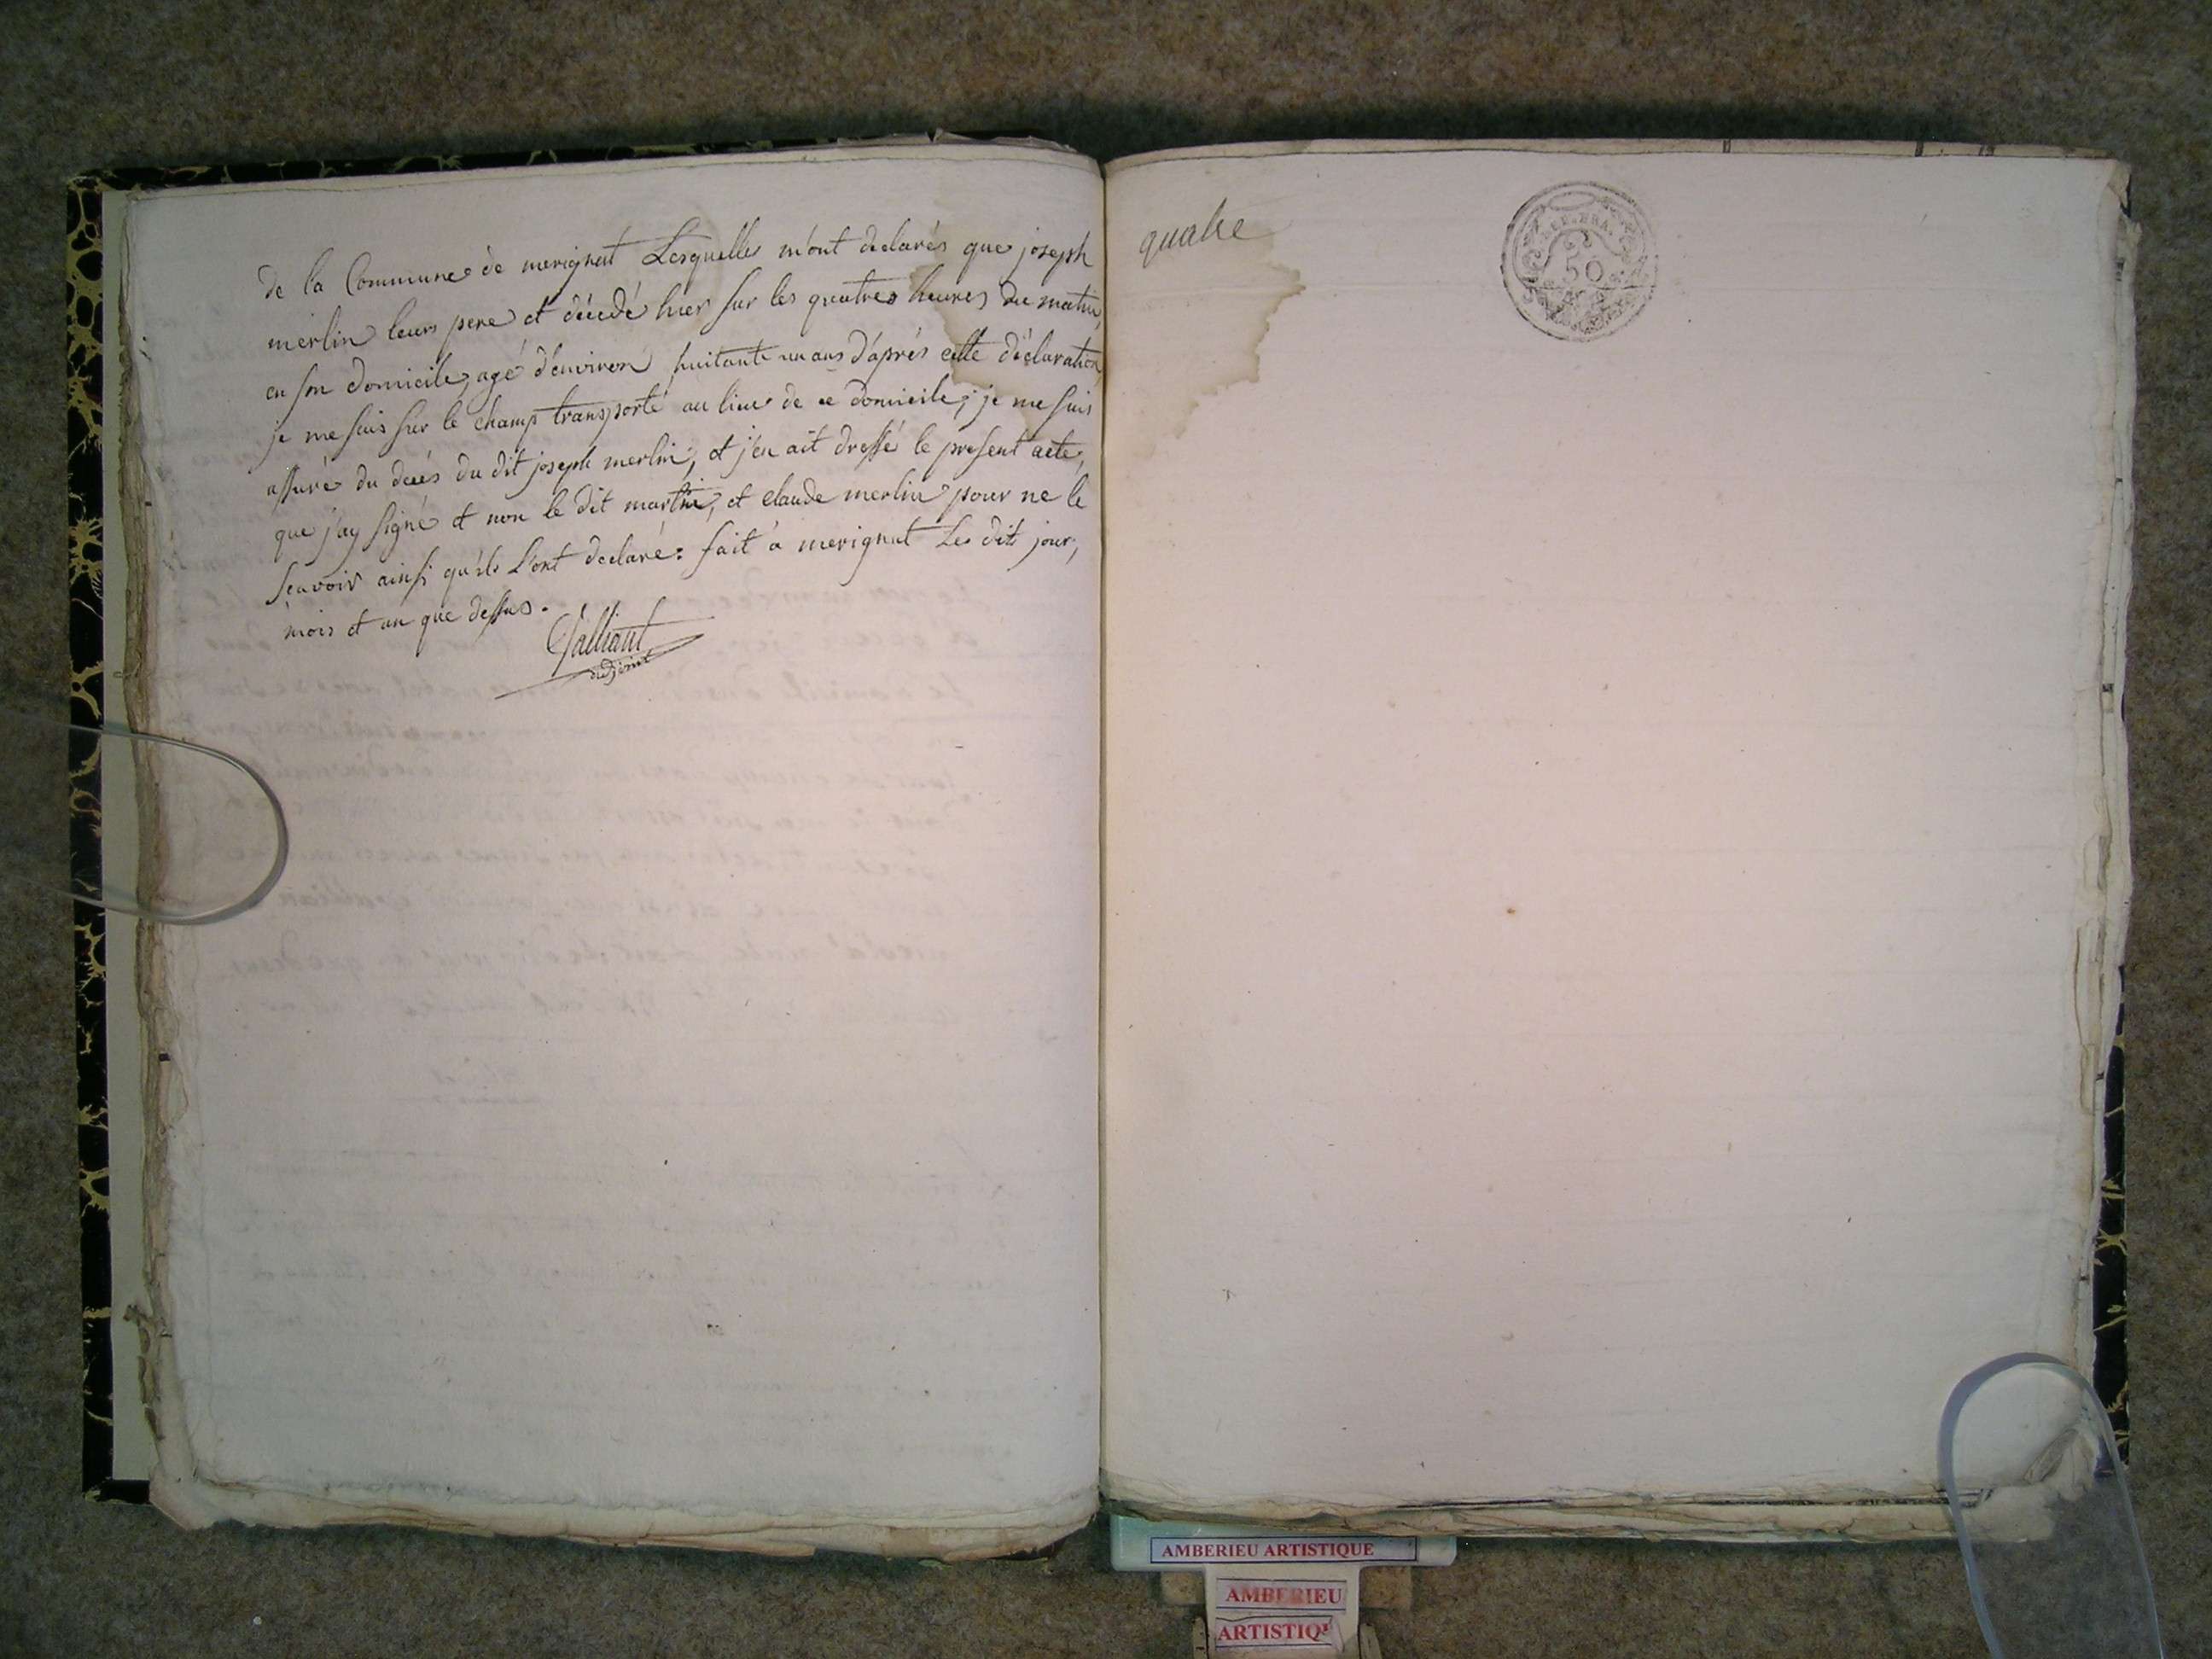 de la Commune de merignat Lesquelles m'ont declarés que joseph
merlin leurs pere et décédé hier sur les quatres heures du matin,
en son domicile, agé d'environ huitante un ans d'après cette déclaration,
je me suis sur le champ transporté au lieu de ce domicile; je me suis
assuré du decés du dit joseph merlin, et j'en ait dressé le present acte,
que j'ay signé et non le dit martin, et claude merlin pour ne le
scavoir ainsi qu'ils L'ont declaré: fait à merignat Les dits jour,
mois et an que dessus.
adjoint
quatre
REP. FRA.
50
AMBERIEU ARTISTIQUE
AMBERIEU
ARTISTIQ